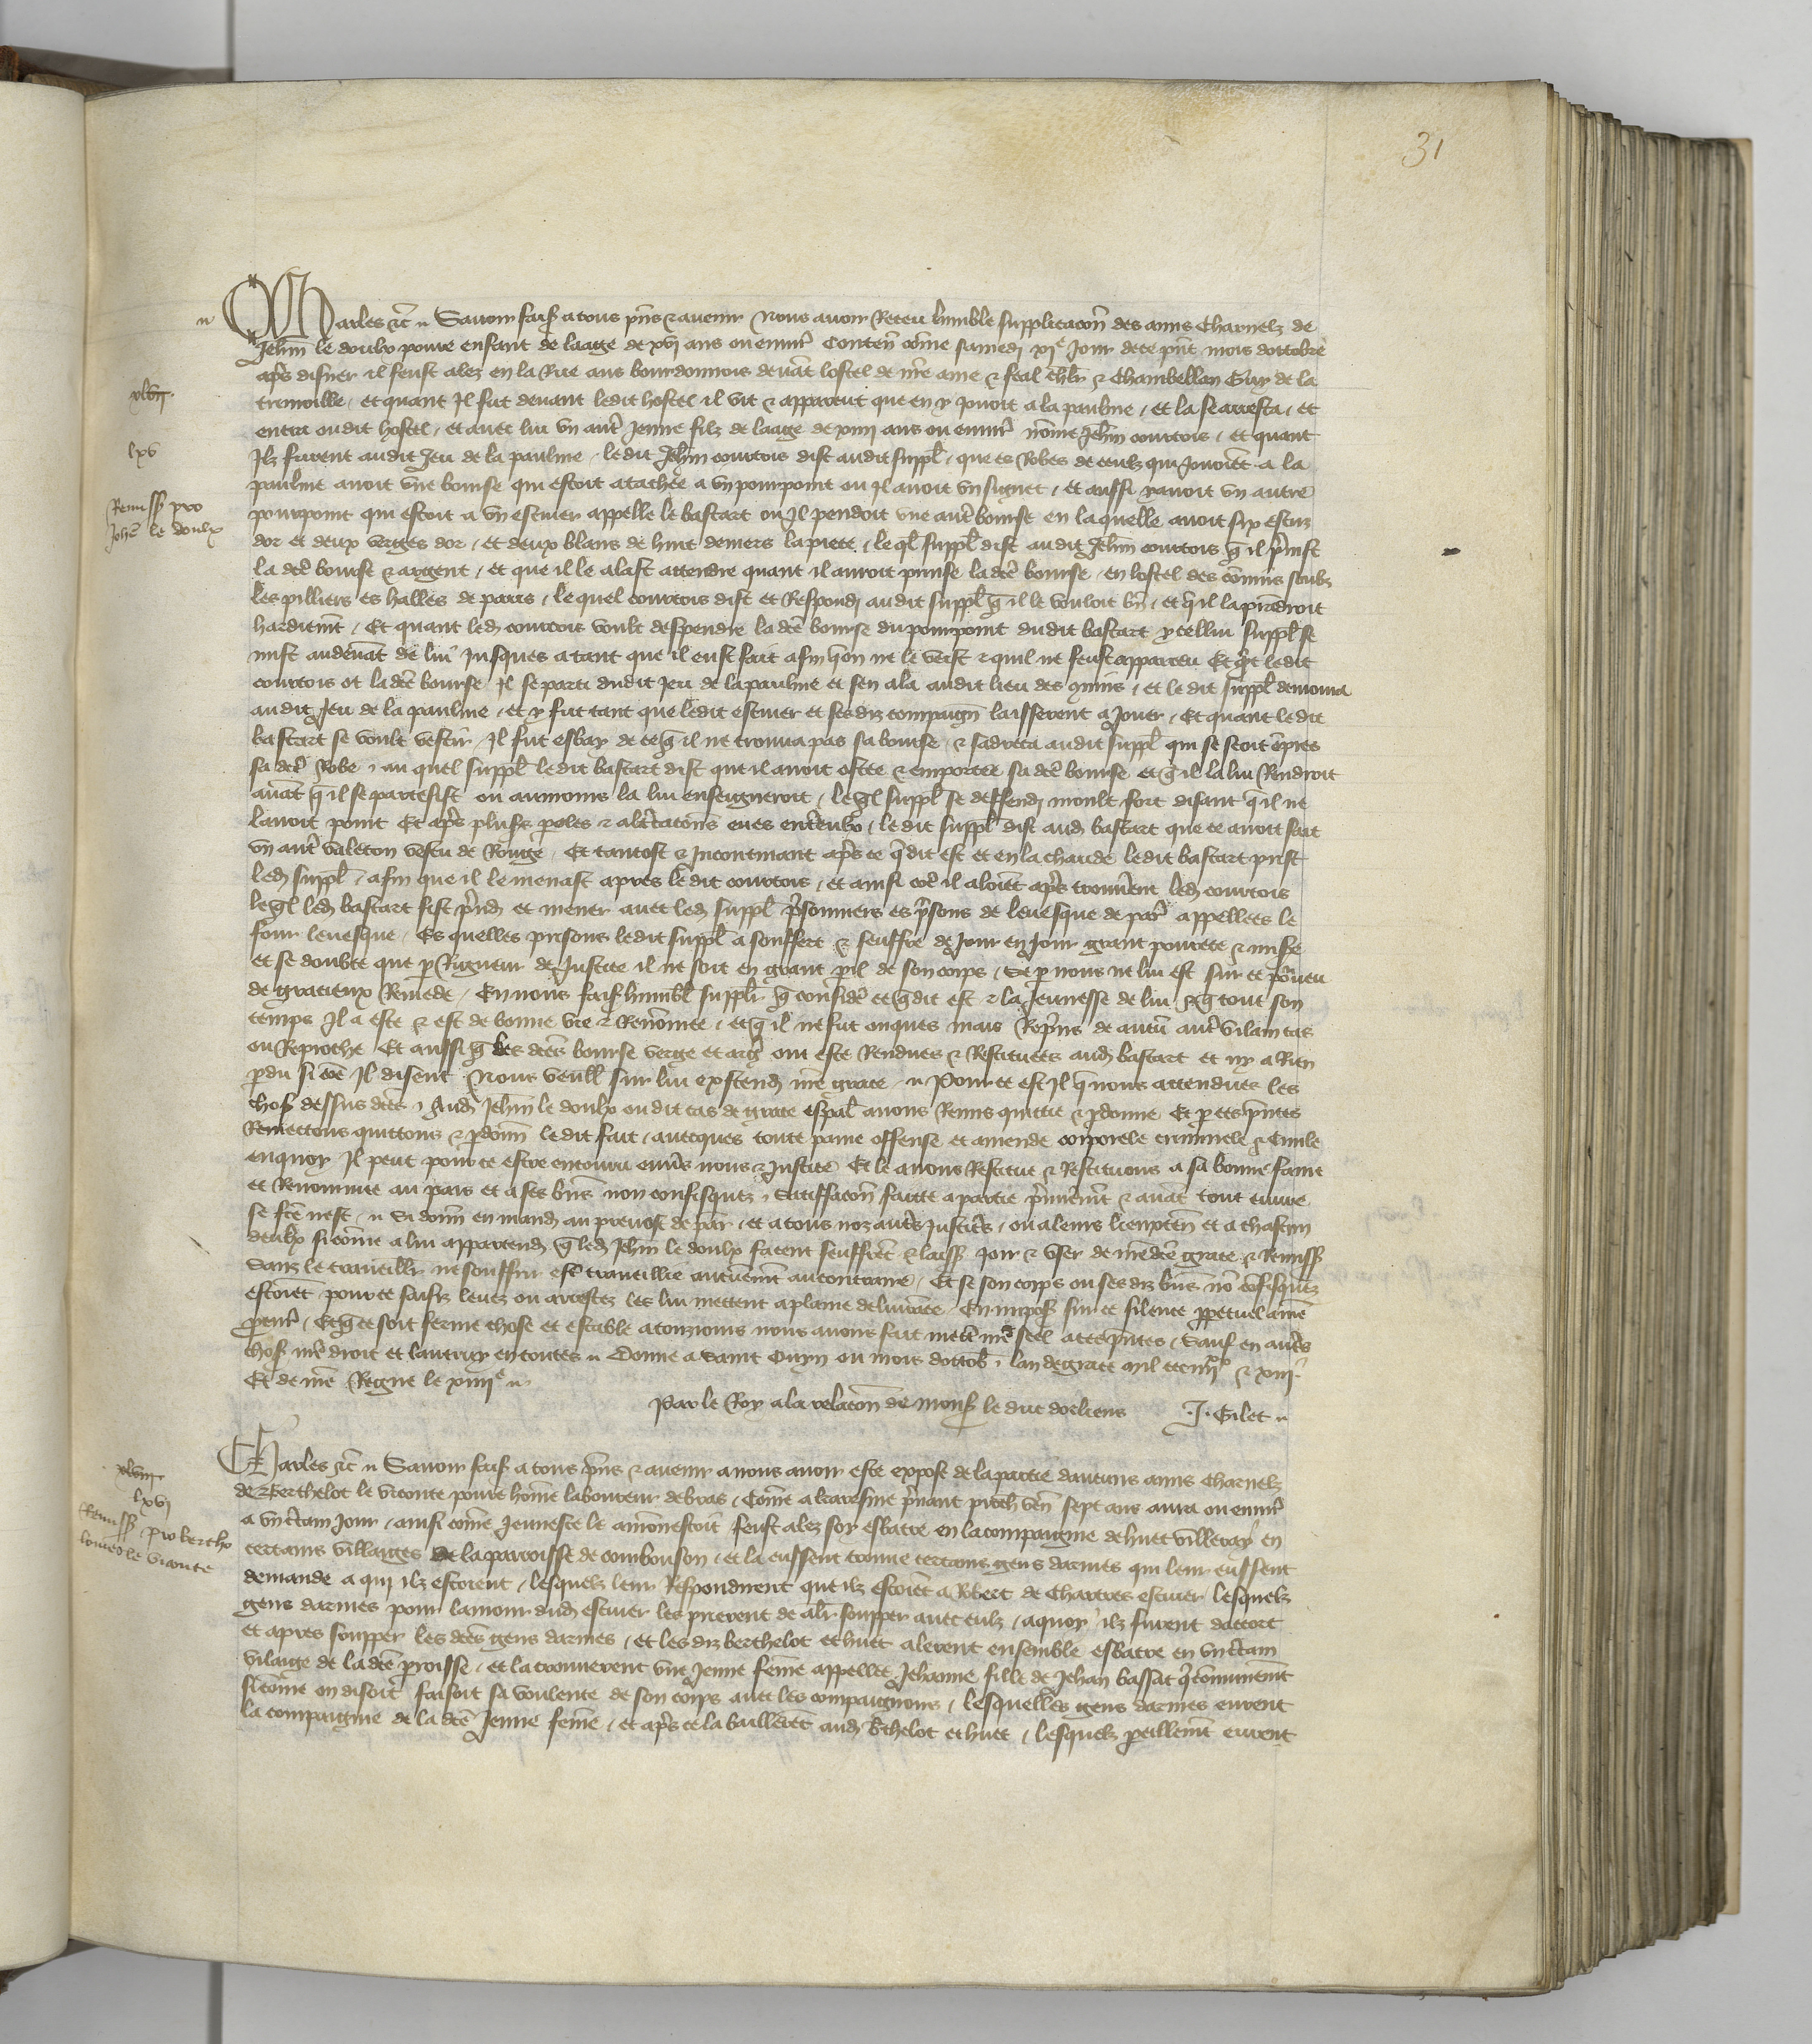 31
Charles etc. Savoir fais. a tous pns & avenir nous avoir Receu lumble supplicacion des amis charnelz de
Jehin le doulx povre enfant de laage de xvj ans ou envir contenn come samedi xje Jour de ce pnt mois dottobre
apres disner il feust alez en la Rue aus bourdonnois devat lostel de nre ame & feal chlr & chambellan Guy de la
tremoille, et quant Il fut devant ledit hostel il vit & apparceut que en y jouoit a la paulme, et la se arresta, et
entra oudit hostel, et avec lui un autre Jeune filz de laage de xiiij ans ou envir nome Jehin courtois, et quant
Ilz furent audit Jeu de la paulme, ledit Jehin courtois dist audit suppl, que es Robes de ceulz qui jouoiet a la
paulme avoit une bourse qui estoit atachee a un pourpoint ou Il avoit un signet, et aussi yavoit un autre
pourpoint qui estoit a un escuier appelle le bastart ou Il pendoit une autre bourse en laquelle avoit six escuz
dor et deux verges dor, et deux blans de huit deniers la piece, leql suppl dist audit Jehin courtois q il prinst
la dce bourse & argent, et que il le alast attendre quant il auroit prinse la dce bourse, en lostel des comins soubz
les pilliers es halles de paris, lequel courtois dist et Respondi audit suppl q il le vouloit bn, et qil la prandroit
hardiemt, Et quant led courtois voult despendre la dce bourse du pourpoint dudit bastart ycellui suppl se
mist audevat de lui jusques a tant que il eust fait afin qon ne le veist & quil ne feust apparceu Et qt ledit
courtois ot la dce bourse, Il se parti dudit Jeu de la paulme et sen ala audit lieu des comins, et ledit suppl demoura
audit Jeu de la paulme, et y fut tant que ledit escuier et sesdiz compaign laisserent a Jouer, Et quant ledit
bastart se voult vestir, Il fut esbay de ce q il ne trouva pas sa bourse, & sadreca audit suppl qui se seoit empres
sa dce Robe, au quel suppl ledit bastart dist que il avoit ostee & emportee sa dce bourse et q il la lui Rendroit
avat q il se partesist ou aumoins la lui enseigneroit, leql suppl se deffendi moult fort disant q il ne
lavoit point Et apres plusrs poles & altcacions eues entreulx, ledit suppl dist aud bastart que ce avoit fait
un autre valeton vestu de Rouge, Et tantost & Incontinant apres ce q dit est et en la chaude ledit bastart prist
led suppl, afin que il le menast apres ledit courtois, et ainsi coe il aloiet apres trouveret led courtois
leql led bastart fist prend et mener avec led suppl prisonniers es prisons de levesque de par appellees le
four levesque, Es quelles prisons ledit suppl a souffert & seuffre de jour en jour grant povrete & misere
et se doubte que p Rigueur de Justice il ne soit en grant pil de son corps, se p nous ne lui est sur ce pourveu
de gracieux Remede, En nous fais humbl supplr q considere ce q dit est & la Jeunesse de lui & q tout son
temps Il a este & est de bonne vie & Renomee, et q il ne fut onques mais Repris de autre vilain cas
ou Reproche Et aussi q les dces bourse verge et arg ont este Rendues & Restituees aud bastart et ny a Rien
pdu si coe Il disent Nous veull sur lui extend nre grace, Pour ce est Il q nous attendues les
chos dessus dces, Aud Jehin le doulx ou dit cas de grace espal avons Remis quicte & pdonne Et p ces pntes
Remectons quittons & pdonn ledit fait, avecques toute paine offense et amende corporele criminele & civile
enquoy Il peut pour ce estre encouru envs nous & justice Et le avons Restitue & Restituons a sa bonne fame
et Renommee au pais et a ses bns non confisquez, Satisfacon faicte a partie primieremt & avat tout euvre
se fce nest, Si donn en mand au prevost de par, et a tous noz autres justiciers, ou a leurs lieuxten et a chascun
deulx si come a lui appartend q led Jehin le doulx facent seuffret & laiss joir & user de nre dce grace & Remiss
Sanz le traveillr ne souffrir estre traveillie autremet au contraire, Et se son corps ou ses diz bns no cofisquez
estoiet pour ce saisiz levez ou arrestez les lui mettent a plaine delivrace, En impos sur ce silence ppetuel a nre
procur, Et q ce soit ferme chose et estable a tousjours nous avons fait mett nre seel a ces pntes, Sauf en autres
chos nre droit et lautruy en toutes Donne a Saint Ouyn ou mois dottob, lan de grace mil ccc iiijxx & xiij
Et de nre Regne le xiiije
Par le Roy a la relacion de mons le duc dorliens J. Gilet
Charles etc. Savoir fais a tous pns & avenir a nous avoir este expose de la partie daucuns amis charnelz
de Berthelot le viconte povre home laboureur de bras, Come a caresme prenant proch ven sept ans aura ou envir
a un ctain jour, ainsi come Jeunesce le amonestoit feust alez soy esbatre en la compaignie de huet villeray en
certains villaiges de la parroisse de combouson, et la eussent trouve certains gens darmes qui leur eussent
demande a qui ilz estoient, lesquelz leur Respondirent que ilz estoiet a Robert de Chartres escuier, lesquelz
gens darmes pour lamour dud escuier les prierent de aler soupper avec eulz, aquoy ilz furent daccort
et apres soupper les dces gens darmes, et lesdiz berthelot et huet alerent ensemble esbatre en un ctain
vilaige de la dce proisse, et la trouverent une Jeune feme appellee Jehanne fille de Jehan bassat q comunemt
si come on disoit faisoit sa voulente de son corps avec les compaignons, lesquelles gens darmes eurent
la compaignie de la dce Jeune feme, et apres ce la bailleret aud bthelot et huet, lesquelz peillemt eurent
xlvij
lxv
Remiss pro
Johe le doulx
xlviij
lxvj
Remiss pro bertho
lomeo le viconte